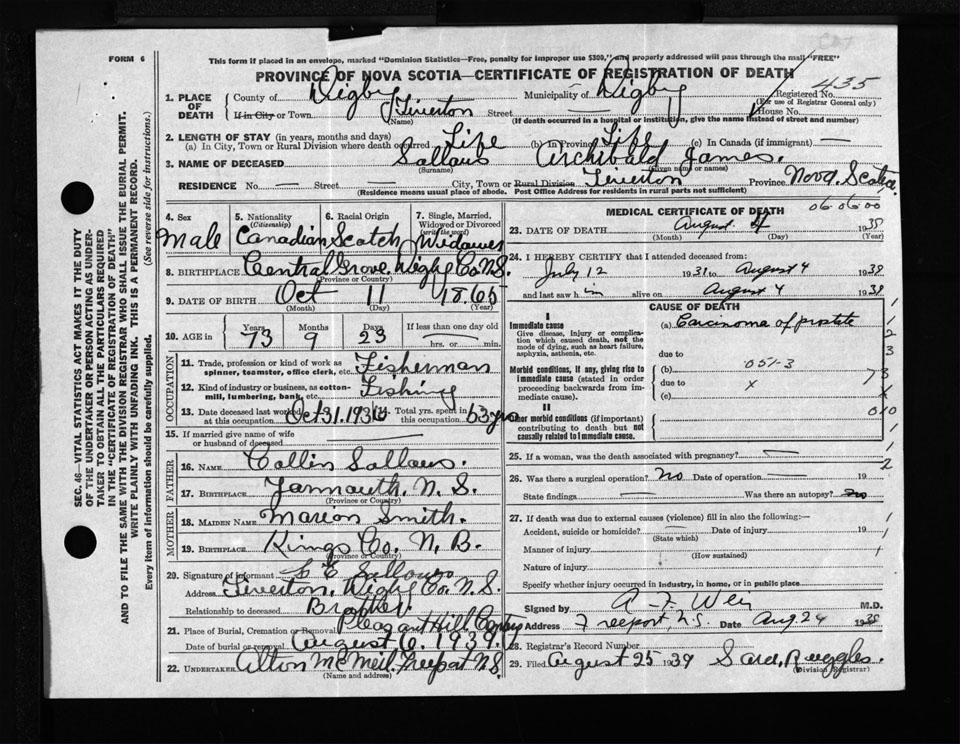 FORM 6
This form if placed in an envelope, marked "Dominion Statistics—Free, penalty for improper use $300," and properly addressed will pass through the mail "FREE"
PROVINCE OF NOVA SCOTIA—CERTIFICATE OF REGISTRATION OF DEATH
435
Registered No.
(For use of Registrar General only)
1. PLACE OF DEATH County of Digby Municipality of Digby
If in City or Town Tiverton Street — House No.
(Name) (If death occurred in a hospital or institution, give the name instead of street and number)
2. LENGTH OF STAY (in years, months and days)
(a) In City, Town or Rural Division where death occurred Life (b) In Province Life (c) In Canada (if immigrant) —
3. NAME OF DECEASED Sollows Archibald James.
(Surname) (Given name or names)
RESIDENCE No. — Street — City, Town or Rural Division Tiverton Province Nova Scotia
(Residence means usual place of abode. Post Office Address for residents in rural parts not sufficient)
4. Sex Male
5. Nationality (Citizenship) Canadian
6. Racial Origin Scotch
7. Single, Married, Widowed or Divorced (write the word) Widower
8. BIRTHPLACE Central Grove Digby Co. N.S.
(Province or Country)
9. DATE OF BIRTH Oct 11 1865
(Month) (Day) (Year)
10. AGE in Years 73 Months 9 Days 23 If less than one day old hrs. or min.
OCCUPATION
11. Trade, profession or kind of work as spinner, teamster, office clerk, etc. Fisherman
12. Kind of industry or business, as cotton-mill, lumbering, bank, etc. Fishing
13. Date deceased last worked at this occupation Oct 31. 193 Total yrs. spent in this occupation 63 yrs
15. If married give name of wife or husband of deceased —
FATHER
16. NAME Collin Sollows.
17. BIRTHPLACE Yarmouth. N. S.
(Province or Country)
MOTHER
18. MAIDEN NAME Marion Smith.
19. BIRTHPLACE Kings Co. N. B.
(Province or Country)
20. Signature of informant E Sollows
Address Tiverton, Digby Co. N.S.
Relationship to deceased Brother.
21. Place of Burial, Cremation or Removal Pleasant Hill Cemy
Date of burial or removal August 6. 1939.
22. UNDERTAKER Alton McNeil, Freeport N.S.
(Name and address)
MEDICAL CERTIFICATE OF DEATH
06 06 00
23. DATE OF DEATH August 4 1939
(Month) (Day) (Year)
24. I HEREBY CERTIFY that I attended deceased from:
July 12 1931 to August 4 1939
and last saw him alive on August 4 1939
CAUSE OF DEATH
I
Immediate cause (a) Carcinoma of prostate
Give disease, injury or complication which caused death, not the mode of dying, such as heart failure, asphyxia, asthenia, etc.
due to
Morbid conditions, if any, giving rise to immediate cause (stated in order proceeding backwards from immediate cause). (b) 051-3
due to x
(c)
II
Other morbid conditions (if important) contributing to death but not causally related to immediate cause.
25. If a woman, was the death associated with pregnancy? —
26. Was there a surgical operation? no Date of operation — 19
State findings — Was there an autopsy? no
27. If death was due to external causes (violence) fill in also the following:—
Accident, suicide or homicide? — Date of injury 19
(State which)
Manner of injury
(How sustained)
Nature of injury
Specify whether injury occurred in industry, in home, or in public place
Signed by A F Weir M.D.
Address Freeport, N.S. Date Aug 24 1939
28. Registrar's Record Number
29. Filed August 25 1939 Sara Ruggles.
(Division Registrar)
SEC. 46—VITAL STATISTICS ACT MAKES IT THE DUTY
OF THE UNDERTAKER OR PERSON ACTING AS UNDER-
TAKER TO OBTAIN ALL THE PARTICULARS REQUIRED
IN THE "CERTIFICATE OF REGISTRATION OF DEATH"
AND TO FILE THE SAME WITH THE DIVISION REGISTRAR WHO SHALL ISSUE THE BURIAL PERMIT.
WRITE PLAINLY WITH UNFADING INK. THIS IS A PERMANENT RECORD.
Every item of information should be carefully supplied. (See reverse side for instructions.)